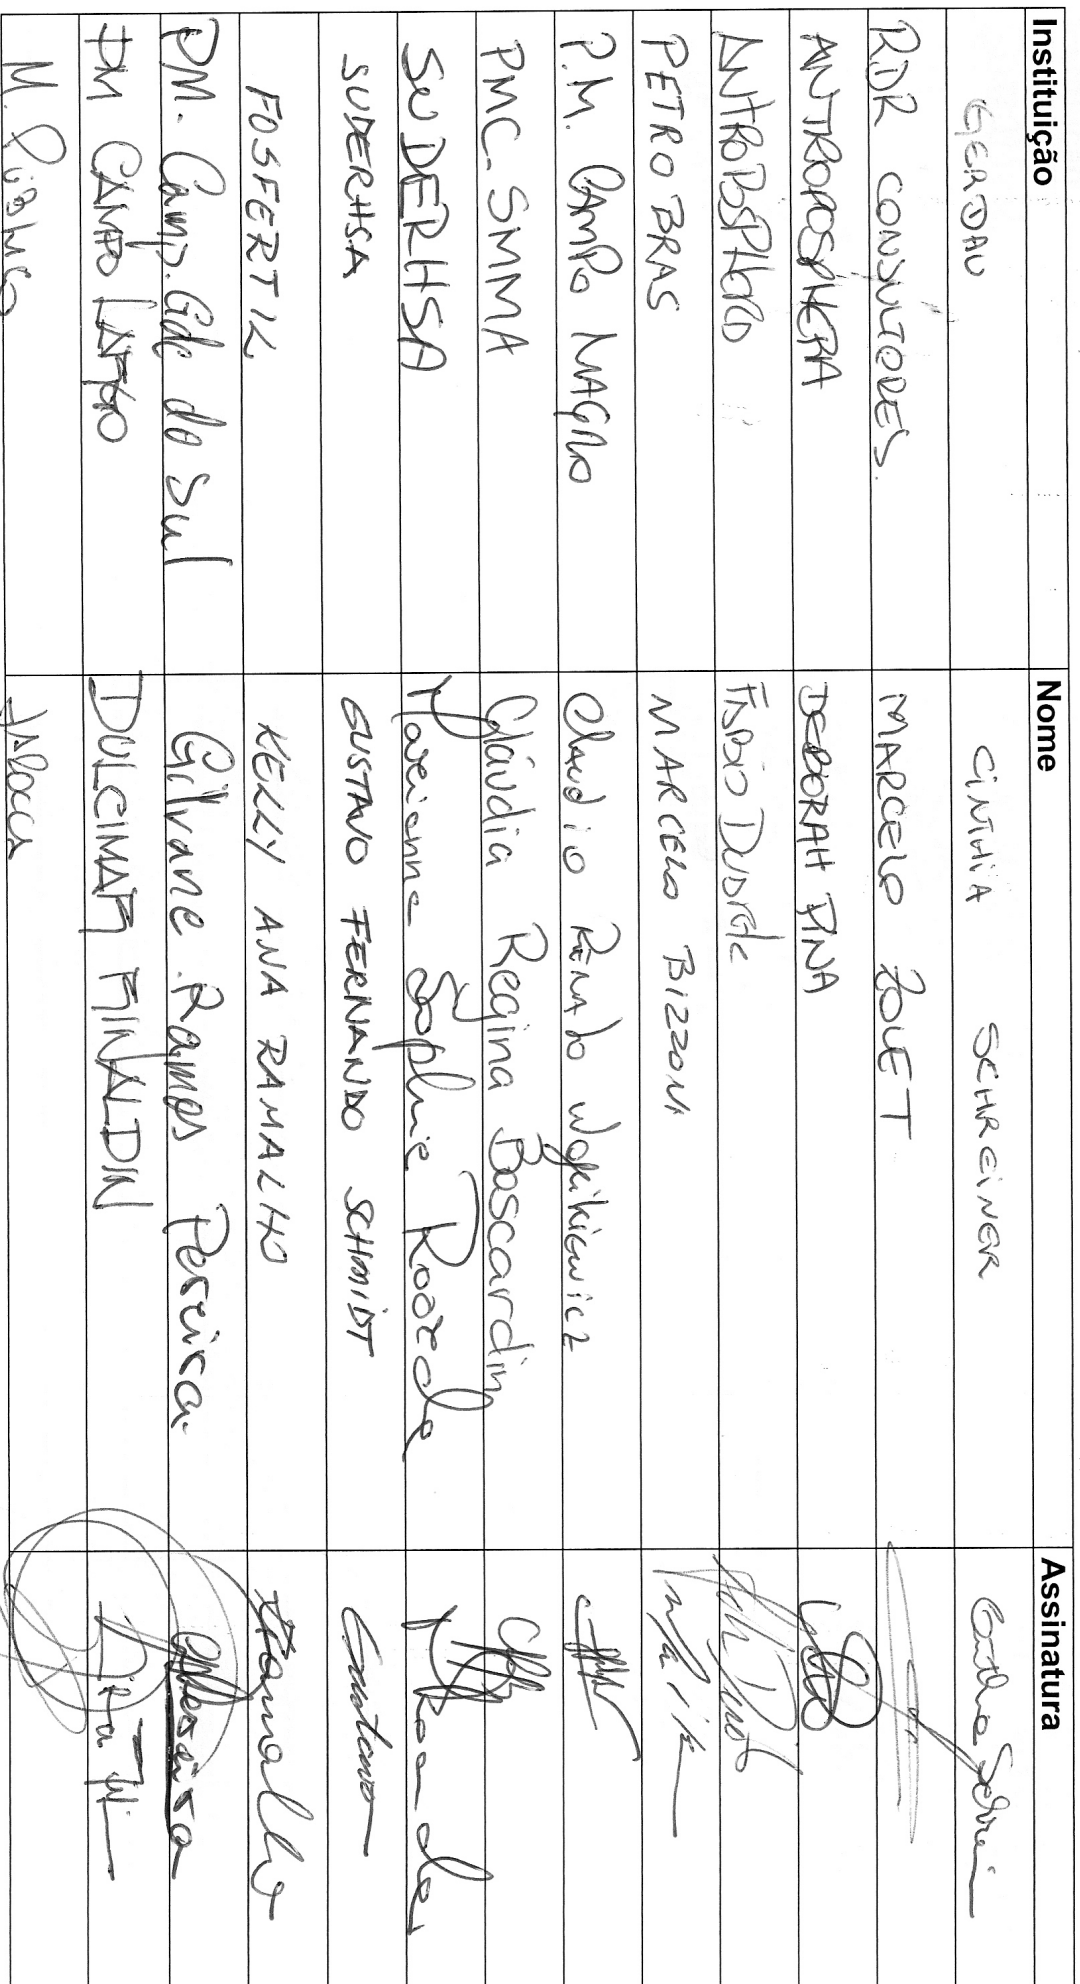 Instituição Nome Assinatura
GERDAU CINTHIA SCHREINER
RDR CONSULTORES MARCELO ZOLET
ANTROPOSPHERA DEBORAH PINA
ANTROPOSPHERA FABIO DUARTE
PETROBRAS MARCELO BIZZONI
P.M. CAMPO MAGRO Claudio RENATO Wojikiewicz
PMC-SMMA Cláudia Regina Boscardin
SUDERHSA Marianne Sophie Roorda
SUDERHSA GUSTAVO FERNANDO SCHMIDT Gustavo
FOSFERTIL KELLY ANA RAMALHO Ramalho
PM. Camp. Gde do Sul Gilvane Ramos Pereira.
PM CAMPO LARGO DULCIMAR RINALDIN
M.